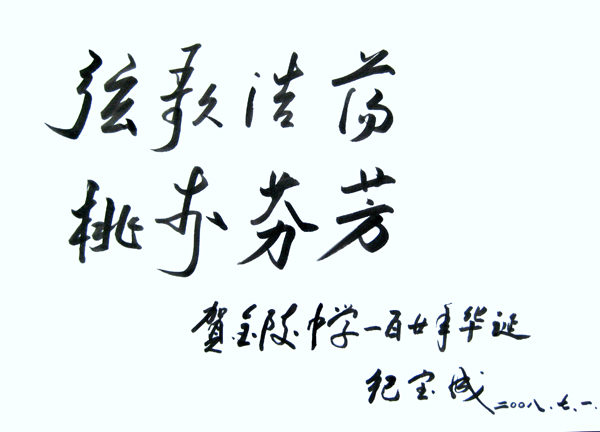 弦歌浩荡
桃李芬芳
贺金陵中学一百廿年华诞
纪宝成 二〇〇八.七.一.